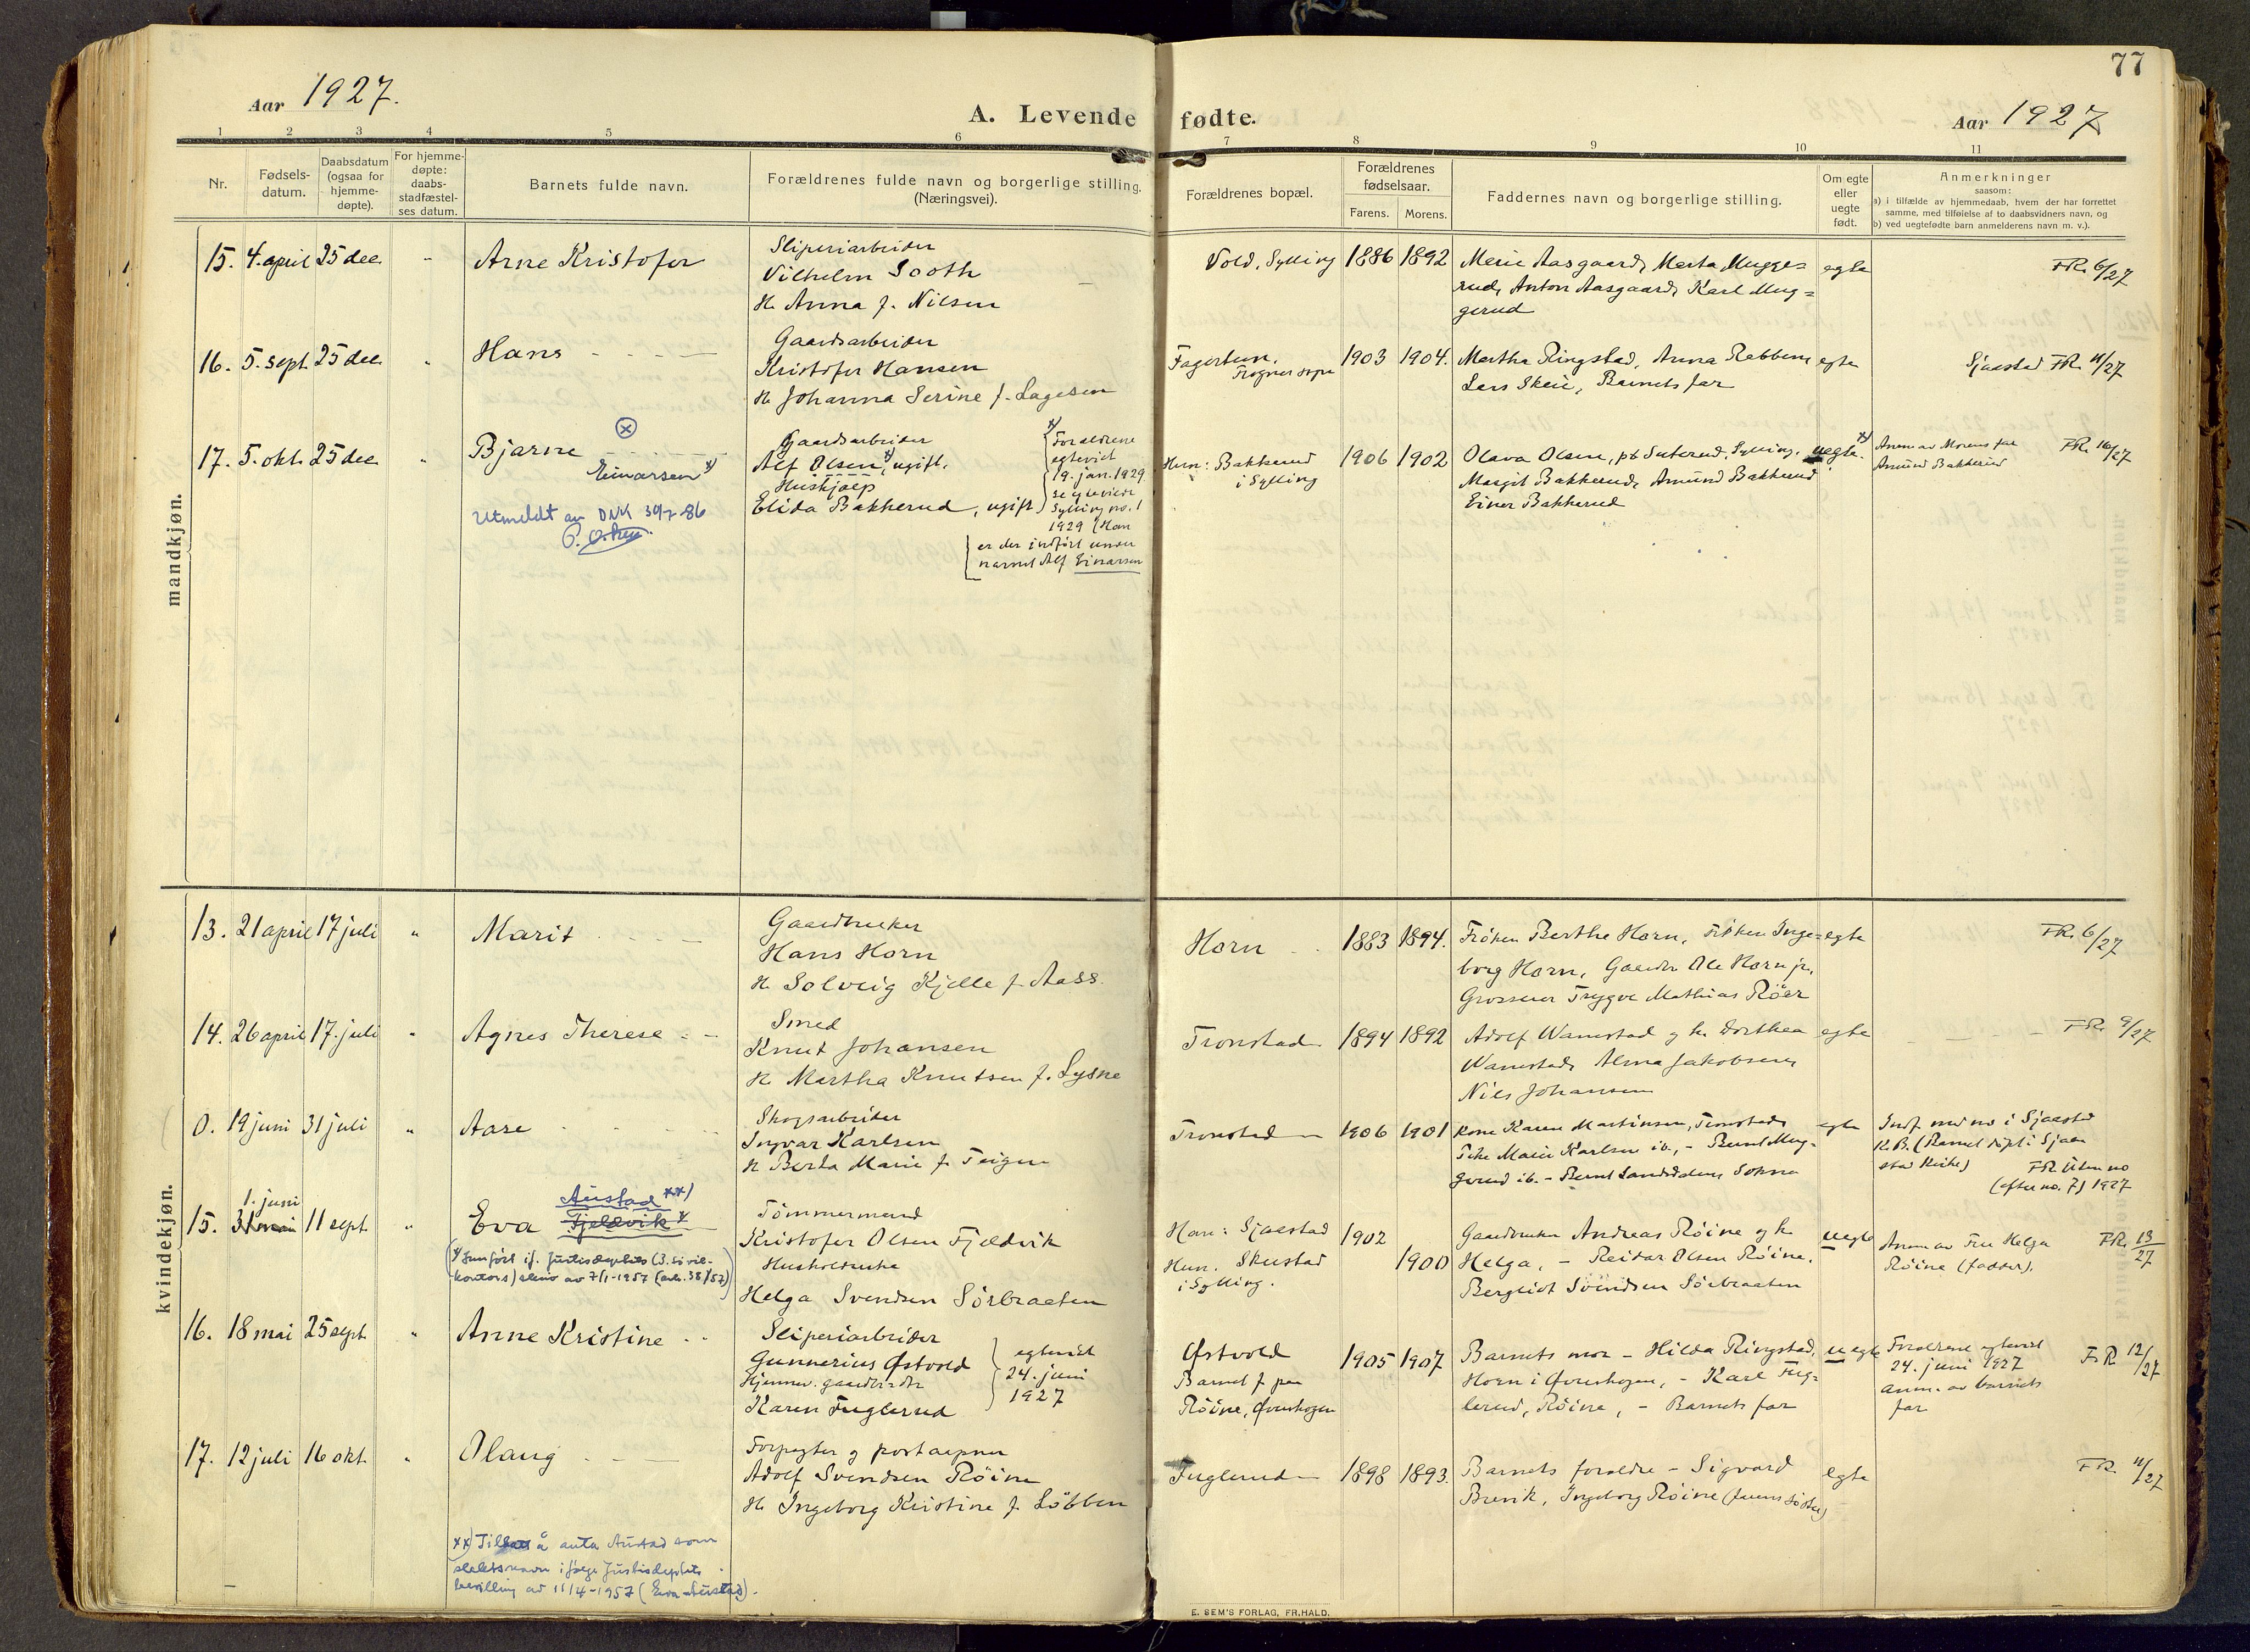 77
Aar 1927.
A. Levende fødte.
Aar 1927
1 2 3 4 5 6 7 8 9 10 11
Nr.
Fødsels-
datum.
Daabsdatum
(ogsaa for
hjemme-
døpte).
For hjemme-
døpte:
daabs-
stadfæstel-
ses datum.
Barnets fulde navn.
Forældrenes fulde navn og borgerlige stilling.
(Næringsvei).
Forældrenes bopæl.
Forældrenes
fødselsaar.
Farens. Morens.
Faddernes navn og borgerlige stilling.
Om egte
eller
uegte
født.
Anmerkninger
saasom:
a) i tilfælde av hjemmedaab, hvem der har forrettet
samme, med tilføielse af to daabsvidners navn, og
b) ved uegtefødte barn anmelderens navn m. v.).
mandkjøn.
15. 4. april 25 dec. "
Arne Kristofer
Sliperiarbeider
Vilhelm Sooth
H. Anna f. Nilsen
Vold, Sylling
1886 1892
Marie Aasgaard, Marta Mugge=
rud, Anton Aasgaard, Karl Mug=
gerud
egte
FR. 6/27
16. 5. sept. 25 dec. "
Hans
Gaardsarbeider
Kristofer Hansen
H. Johanna Serine f. Lagesen
Fagertun,
Frogner sogn
1903 1904.
Martha Ringstad, Anna Rabben
Lars Skeie, Barnets far
egte
Sjaastad FR. 11/27
17. 5. okt. 25 dec. "
Bjarne
Einarsen x)
Utmeldt av DNK 30/7-86
Gaardsarbeider
Alf Olsen x), ugift.
Hushjælp
Elida Bakkerud, ugift
x) Forældrene
egteviet
19. jan. 1929
se egteviede
Sylling no. 1
1929 (Han
er der indført under
navnet Alf Einarsen
Hun: Bakkerud
i Sylling
1906 1902
Olava Olsen, pt. Suterud, Sylling,
Margit Bakkerud, Amund Bakkerud
Einar Bakkerud
uegte. x)
Anm. av Morens far
Amund Bakkerud
FR. 16/27
kvindekjøn.
13. 21 april 17 juli "
Marit
Gaardbruker
Hans Horn
H. Solveig Kjelle f. Aass.
Horn
1883 1894.
Frøken Berthe Horn, Frøken Inge=
borg Horn, Gaardbr Ole Horn jr.
Grosserer Trygve Mathias Röer
egte
FR. 6/27
14. 26 april 17. juli "
Agnes Therese
Smed
Knut Johansen
H. Martha Knutsen f. Lysne
Tronstad
1894 1892
Adolf Wamstad og h. Dorthea
Wamstad, Alma Jakobsen,
Nils Johansen
egte
FR. 9/27
0. 19 juni 31 juli "
Aase
Skogsarbeider
Ingvar Karlsen
H. Berta Marie f. Teigen
Tronstad
1906 1901
Kone Karen Martinsen, Tronstad,
Pike Marie Karlsen ib., - Bernt Mug-
gerud ib. - Bernt Landsdalen, Sokna
egte
Indf. med no i Sjaastad
K.B. (Barnet døpt i Sjaa-
stad Kirke)
FR. Uten no
(efter no. 7) 1927
15. 1. juni
31 mai 11 sept. "
Eva Austad xx)
Fjeldvik x)
(x) Jamført if. Justisdeptets (3. sivil-
kontors) skriv av 7/1-1957 (ark. 38/57)
Tömmermand
Kristofer Olsen Fjeldvik
Husholderske
Helga Svendsen Sörbraaten
Han: Sjaastad
Hun. Skustad
i Sylling.
1902
1900
Gaardbruker Andreas Röine og h.
Helga, - Reidar Olsen Röine,
Bergliot Svendsen Sörbraaten
uegte
Anm. av Fru Helga
Röine (fadder).
FR. 13/27
16. 18 mai 25 sept. "
Anne Kristine
Sliperiarbeider
Gunnerius Østvold
Hjemmev. gaardbr.dtr
Karen Fuglerud
egteviet
24. juni
1927
Østvold
Barnet f. paa
Röine, Øverskogen
1905 1907
Barnets mor - Hilda Ringstad,
Horn i Øverskogen, - Karl Fug-
lerud, Röine, - Barnets far
uegte
Forældrene egteviet
24. juni 1927
anm. av barnets
far
FR 12/27
17. 12 juli 16 okt. "
Olaug
Forpagter og postaapner
Adolf Svendsen Röine
H. Ingeborg Kristine f. Löbben
Fuglerud
1898 1893.
Barnets foreldre - Sigvard
Brevik, Ingeborg Röine (farens söster)
egte
FR. 11/27
xx) Tillatt å anta Austad som
slektsnavn ifølge Justisdeptets
bevilling av 11/4-1957 (Eva Austad).
E. SEM'S FORLAG, FR.HALD.